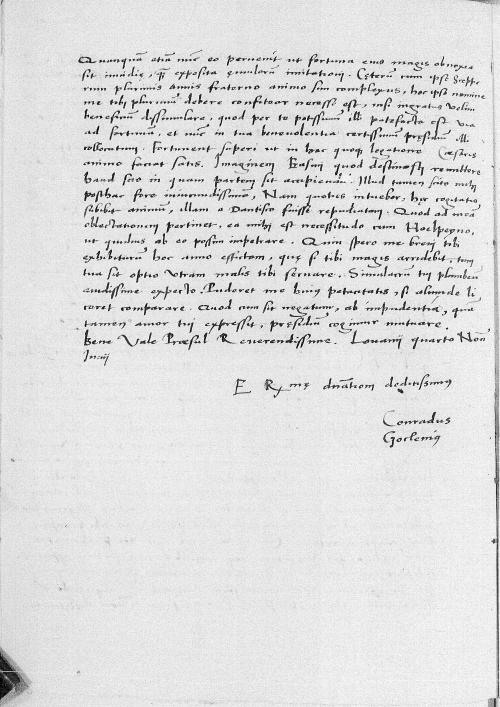 Quanquā etiā nūc eo peruenit ut fortuna eius magis obnoxia
sit inuidię, q̄ exposita ęmulorū imitationi. Cęterū cum ipsū Scepperum
plurimis annis fraterno animo sim complexus, hoc ipso nomine
me tibi plurimū debere confitear necesse est, nisi ingratus velim
beneficiū dissimulare, quod per te potissimū illi patefacta est via
ad fortunā, et nūc in tua beneuolentia certissimū pręsidiū illi
collocatum. Fortunent superi ut in hac quoq; legatione Cæsaris
animo faciat satis. Imaginem Erasmi quod destinasti remittere
haud scio in quam partem sit accipiendū. Illud tamen scio mihi
posthac fore iniucundissimā, Nam quoties intuebor, hęc cogitatio
subibit animū, illam a Dantisco fuisse repudiatam. Quod ad meā
oblectationem pertinet, ea mihi est necessitudo cum Hoelpeyno,
ut quiduis ab eo possim impetrare. Quin spero me breui tibi
exhibiturū hoc anno effictam, quę si tibi magis arridebit, tum
tua sit optio vtram malis tibi seruare. Simulacrū tuū plumbeū
auidissime expecto. Puderet me huius petacitatis, si aliunde liceret
comparare. Quod cum sit negatum, ab impudentia, quā
tamen amor tui expressit, pręsidiū cogimur mutuare.
Bene Vale Præsul Reuerendissime. Louanij quarto Non
Junij
E. R. mę dn̄ationi deditissimus
Conradus
Goclenius